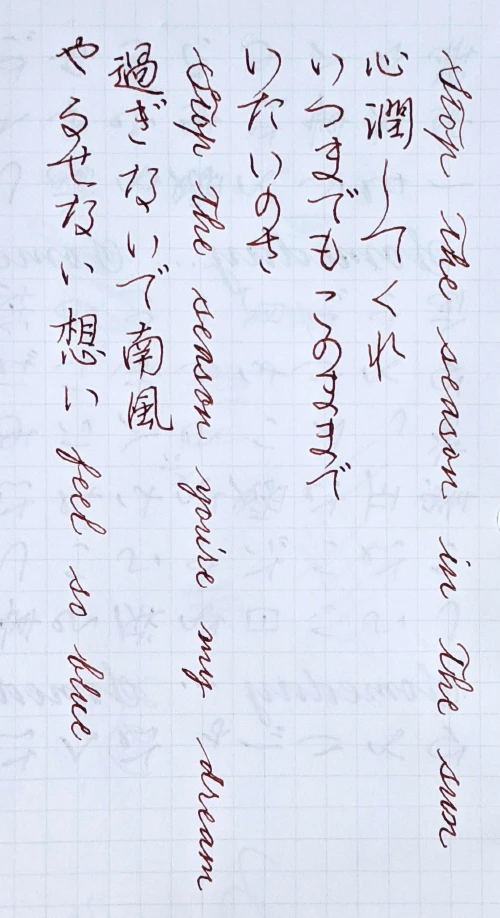 Stop the season in the sun
心潤してくれ
いつまでもこのままで
いたいのさ
Stop the season you're my dream
過ぎないで南風
やるせない想い feel so blue